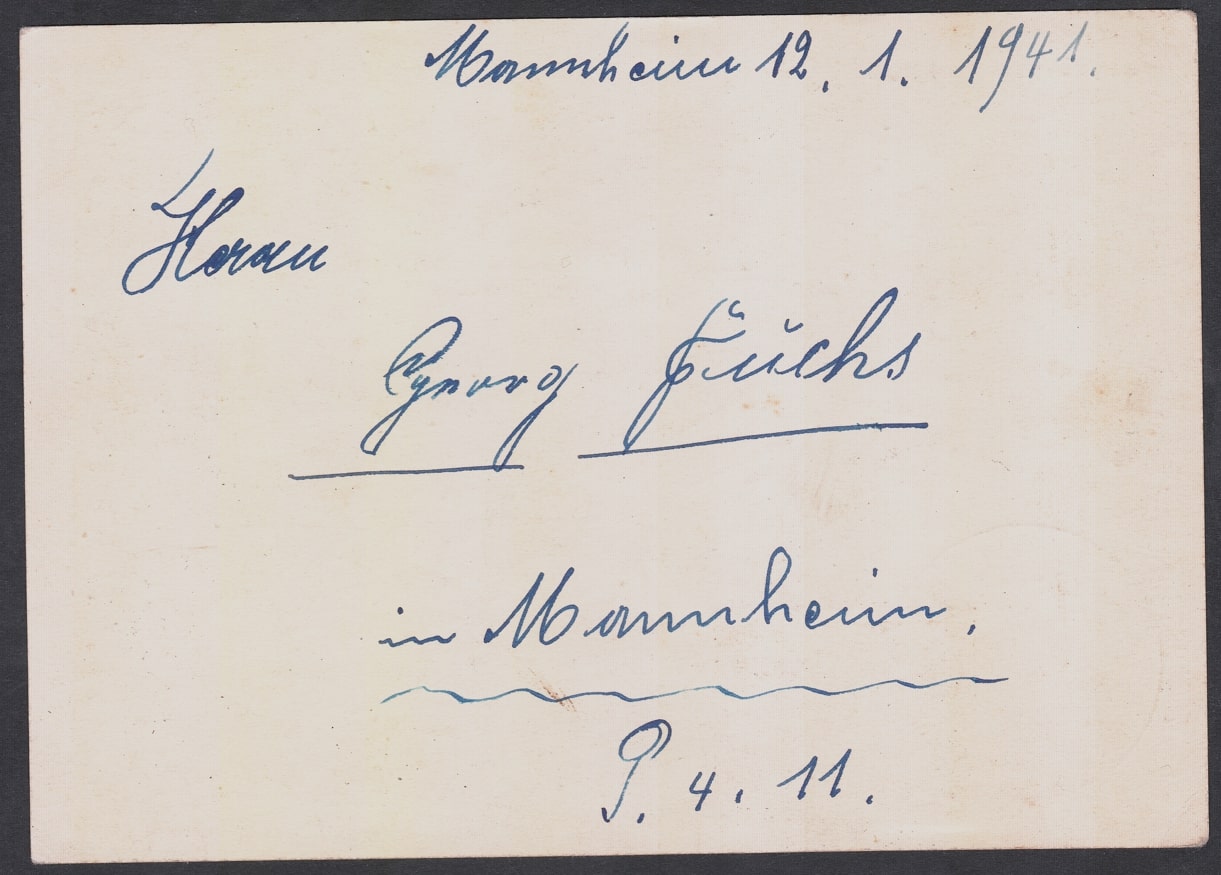 Mannheim 12. 1. 1941.
Herrn
Georg Fuchs
in Mannheim.
P. 4. 11.